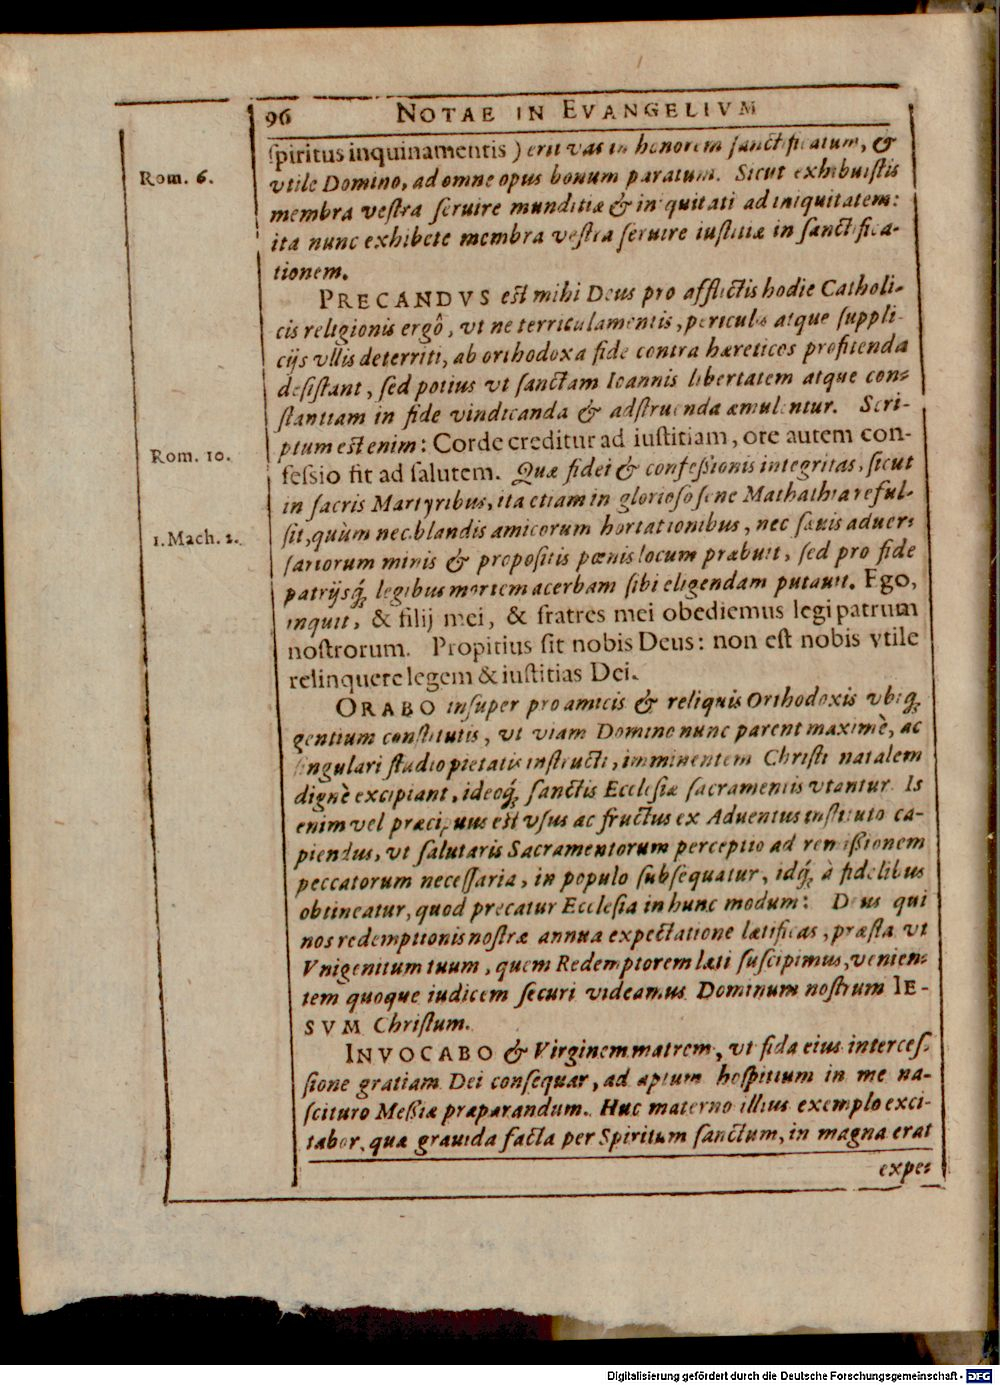 96 NOTAE IN EVANGELIVM
spiritus inquinamentis) erit vas in honorem sanctificatum, &
Rom. 6.
vtile Domino, ad omne opus bonum paratum. Sicut exhibuistis
membra vestra seruire munditiæ & iniquitati ad iniquitatem:
ita nunc exhibete membra vestra seruire iustitiæ in sanctifica-
tionem.
PRECANDVS est mihi Deus pro afflictis hodie Catholi-
cis religionis ergô, vt ne terriculamentis, periculis atque suppli-
cijs vllis deterriti, ab orthodoxa fide contra hæreticos profitenda
desistant, sed potius vt sanctam Ioannis libertatem atque con-
stantiam in fide vindicanda & adstruenda æmulentur. Scri-
ptum est enim: Corde creditur ad iustitiam, ore autem con-
Rom. 10.
fessio fit ad salutem. Quæ fidei & confeßionis integritas, sicut
in sacris Martyribus, ita etiam in glorioso sene Mathathia reful-
1. Mach. 2.
sit, quùm nec blandis amicorum hortationibus, nec sæuis aduer-
sariorum minis & propositis pœnis locum præbuit, sed pro fide
patrijsq́; legibus mortem acerbam sibi eligendam putauit. Ego,
inquit, & filij mei, & fratres mei obediemus legi patrum
nostrorum. Propitius sit nobis Deus: non est nobis vtile
relinquere legem & iustitias Dei.
ORABO insuper pro amicis & reliquis Orthodoxis vbiq́;
gentium constitutis, vt viam Domino nunc parent maximè, ac
singulari studio pietatis instructi, imminentem Christi natalem
dignè excipiant, ideoq́; sanctis Ecclesiæ sacramentis vtantur. Is
enim vel præcipuus est vsus ac fructus ex Aduentus instituto ca-
piendus, vt salutaris Sacramentorum perceptio ad remißionem
peccatorum necessaria, in populo subsequatur, idq́; à fidelibus
obtineatur, quod precatur Ecclesia in hunc modum: Deus qui
nos redemptionis nostræ annua expectatione lætificas, præsta vt
Vnigenitum tuum, quem Redemptorem læti suscipimus, venien-
tem quoque iudicem securi videamus Dominum nostrum IE-
SVM Christum.
INVOCABO & Virginem matrem, vt fida eius interces-
sione gratiam Dei consequar, ad aptum hospitium in me na-
scituro Meßiæ præparandum. Huc materno illius exemplo exci-
tabor, quæ grauida facta per Spiritum sanctum, in magna erat
expe-
Digitalisierung gefördert durch die Deutsche Forschungsgemeinschaft - DFG